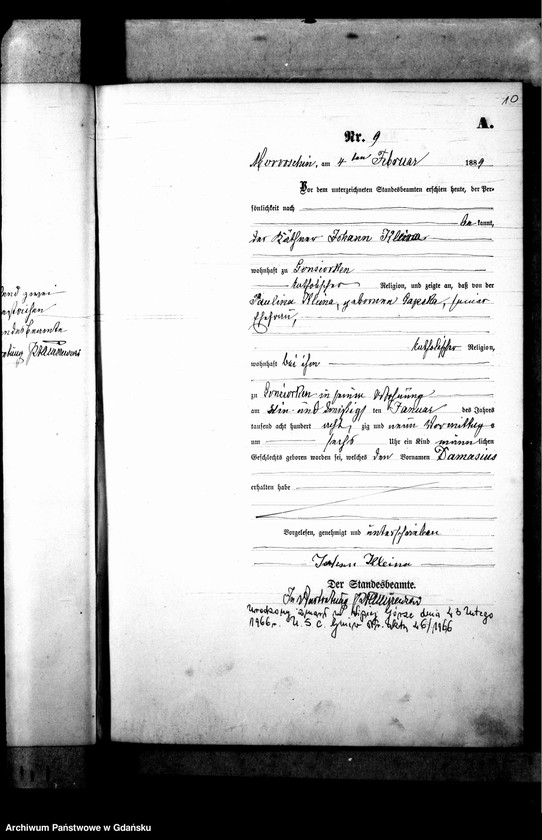 10
A.
Nr. 9
am 4 ten Februar 1889
Vor dem unterzeichneten Standesbeamten erschien heute, der Per-
sönlichkeit nach
be kannt,
der Käthner Johann Kleina
wohnhaft zu Lonciorken
katholischer Religion, und zeigte an, daß von der
Paulina Kleina, geborene seiner
Ehefrau,
katholischer Religion,
wohnhaft bei ihm
zu Lonciorken in seiner Wohnung
am ein und dreißigsten Januar des Jahres
tausend acht hundert acht zig und neun Vormittags
um sechs Uhr ein Kind männ lichen
Geschlechts geboren worden sei, welches den Vornamen Damasius
erhalten habe
Vorgelesen, genehmigt und unterschrieben
Johann Kleina
Der Standesbeamte.
In Vertretung
zmarł w dnia 23 lutego
1966 r. U.S.C. Gniew Nr. aktu 46/1966
und zwei
Archiwum Państwowe w Gdańsku